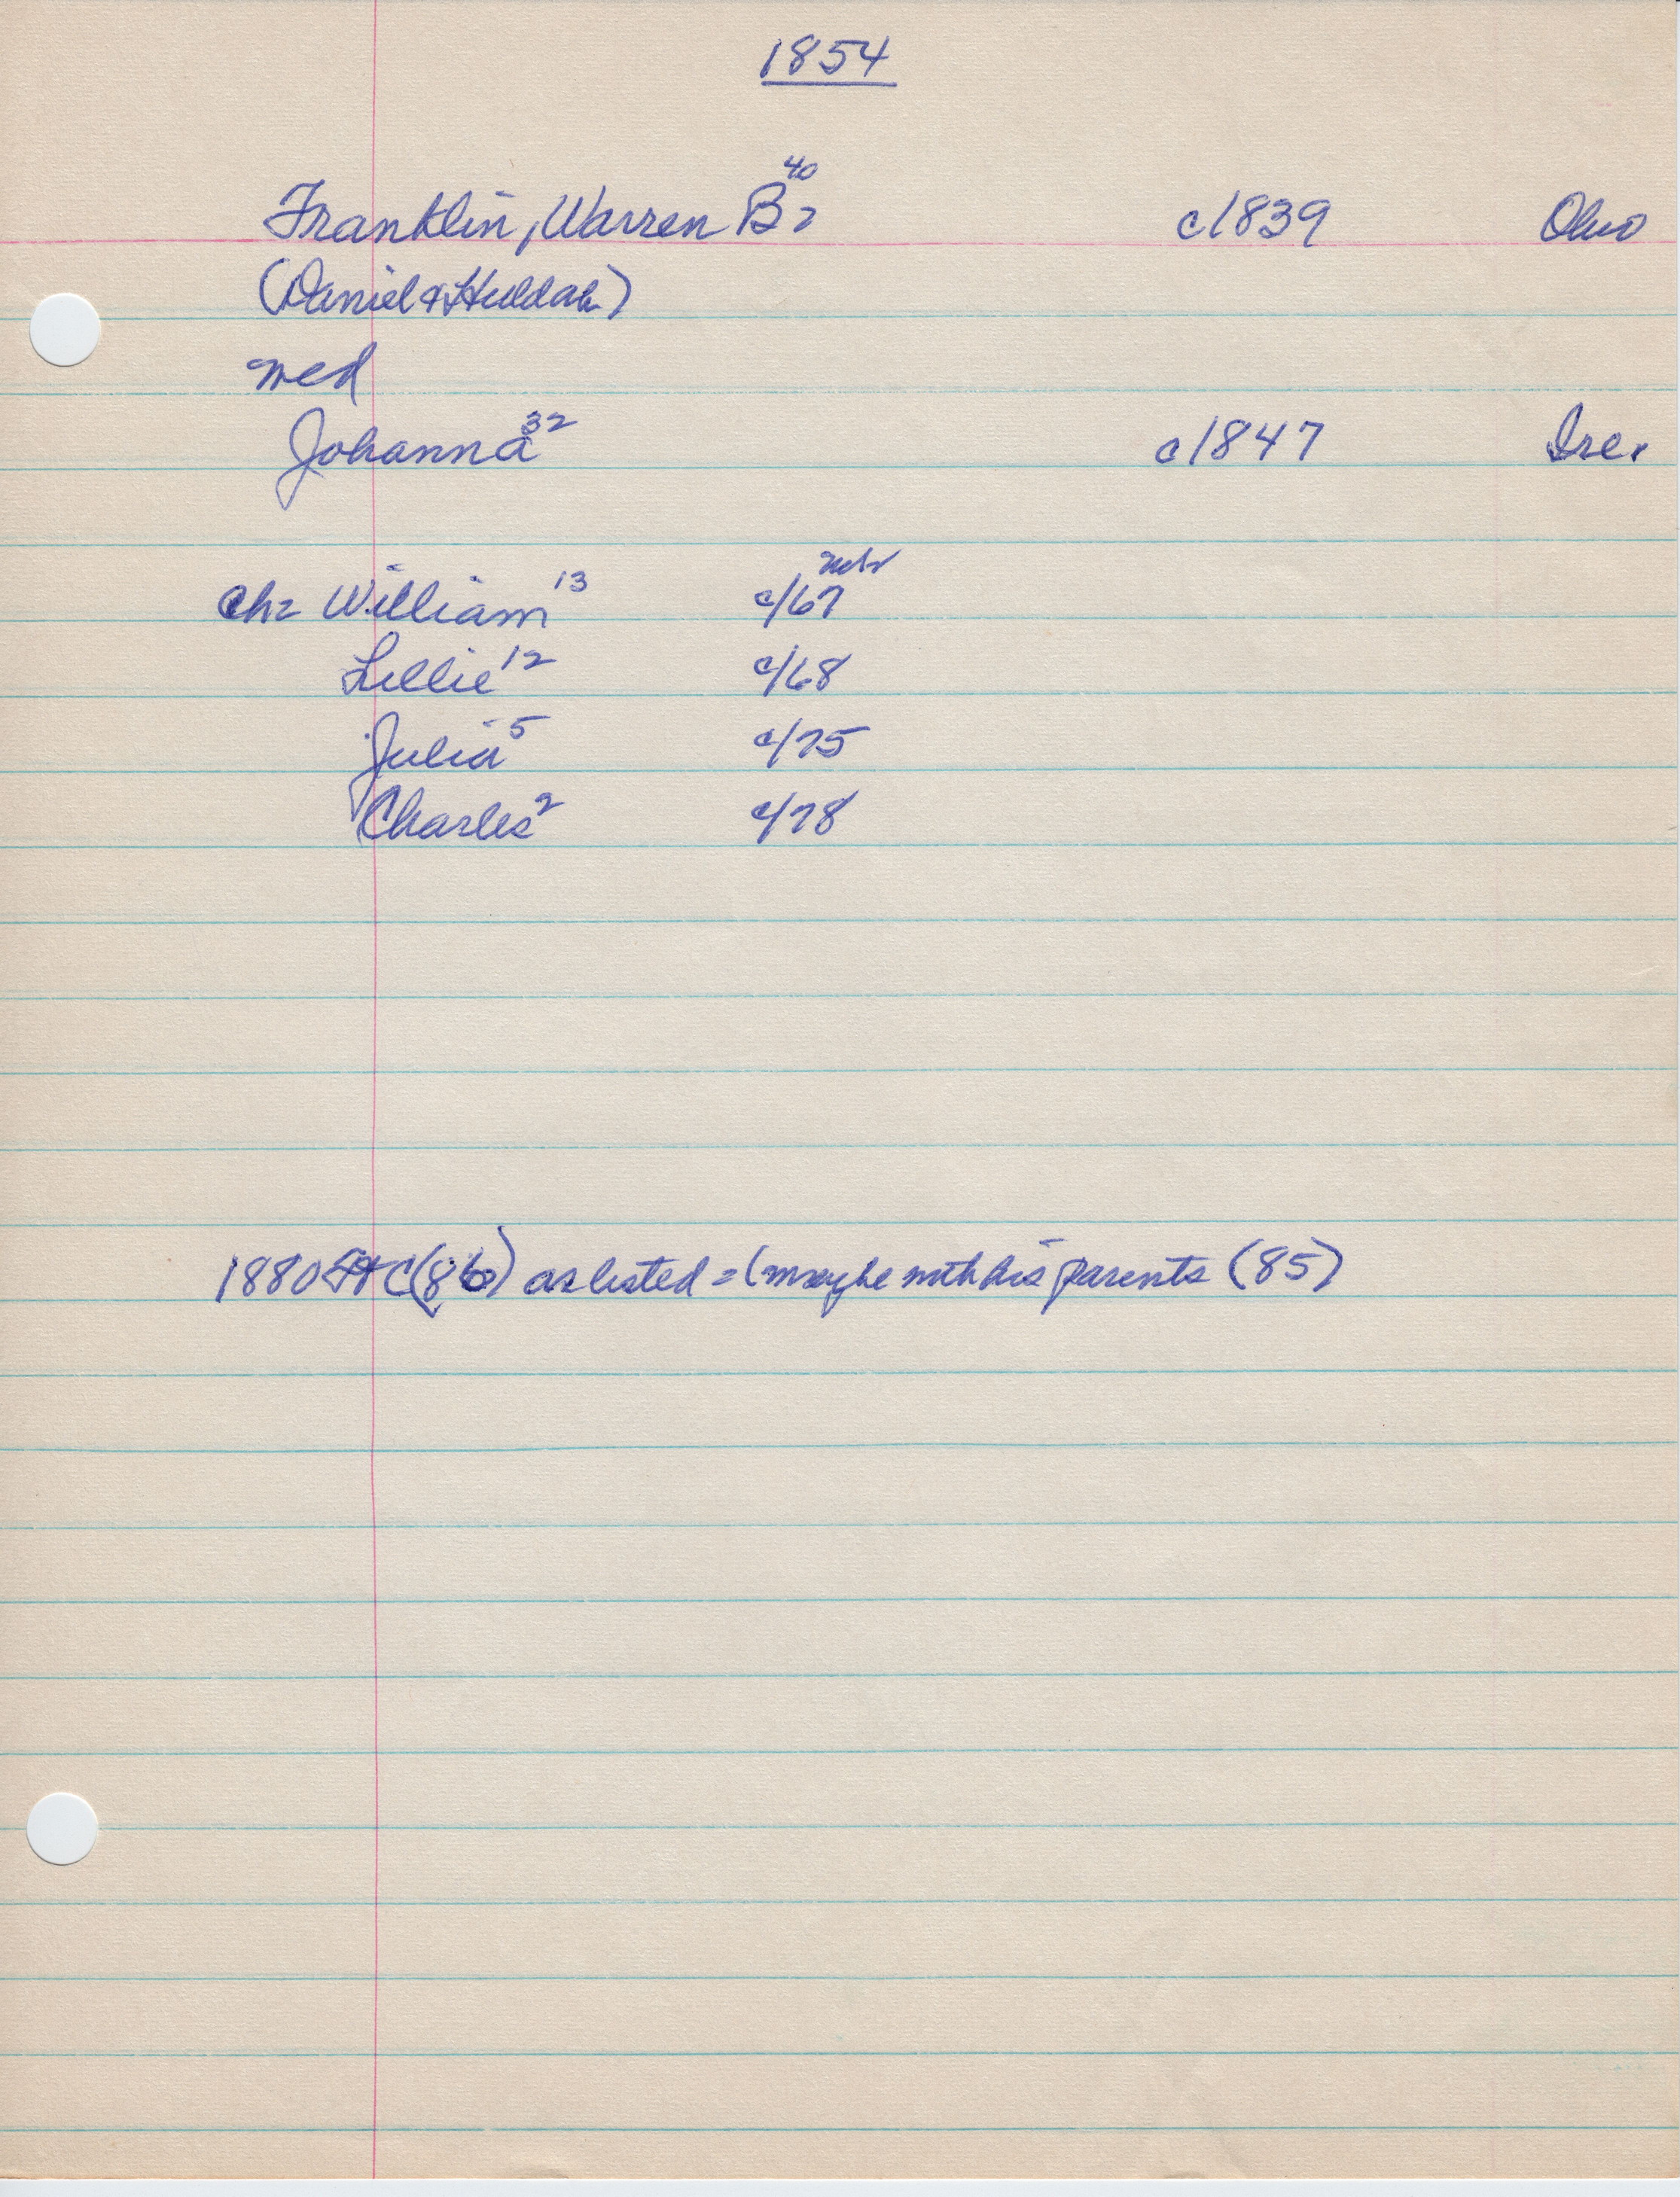 1854
Franklin, Warren B 40 c1839 Ohio
(Daniel & Huldah)
med
Johanna 32 c1847 Ire.
ch= William 13 c/67
Lillie 12 c/68
Julia 5 c/75
Charles 2 c/78
1880 C(86) as listed = (maybe with his parents (85)